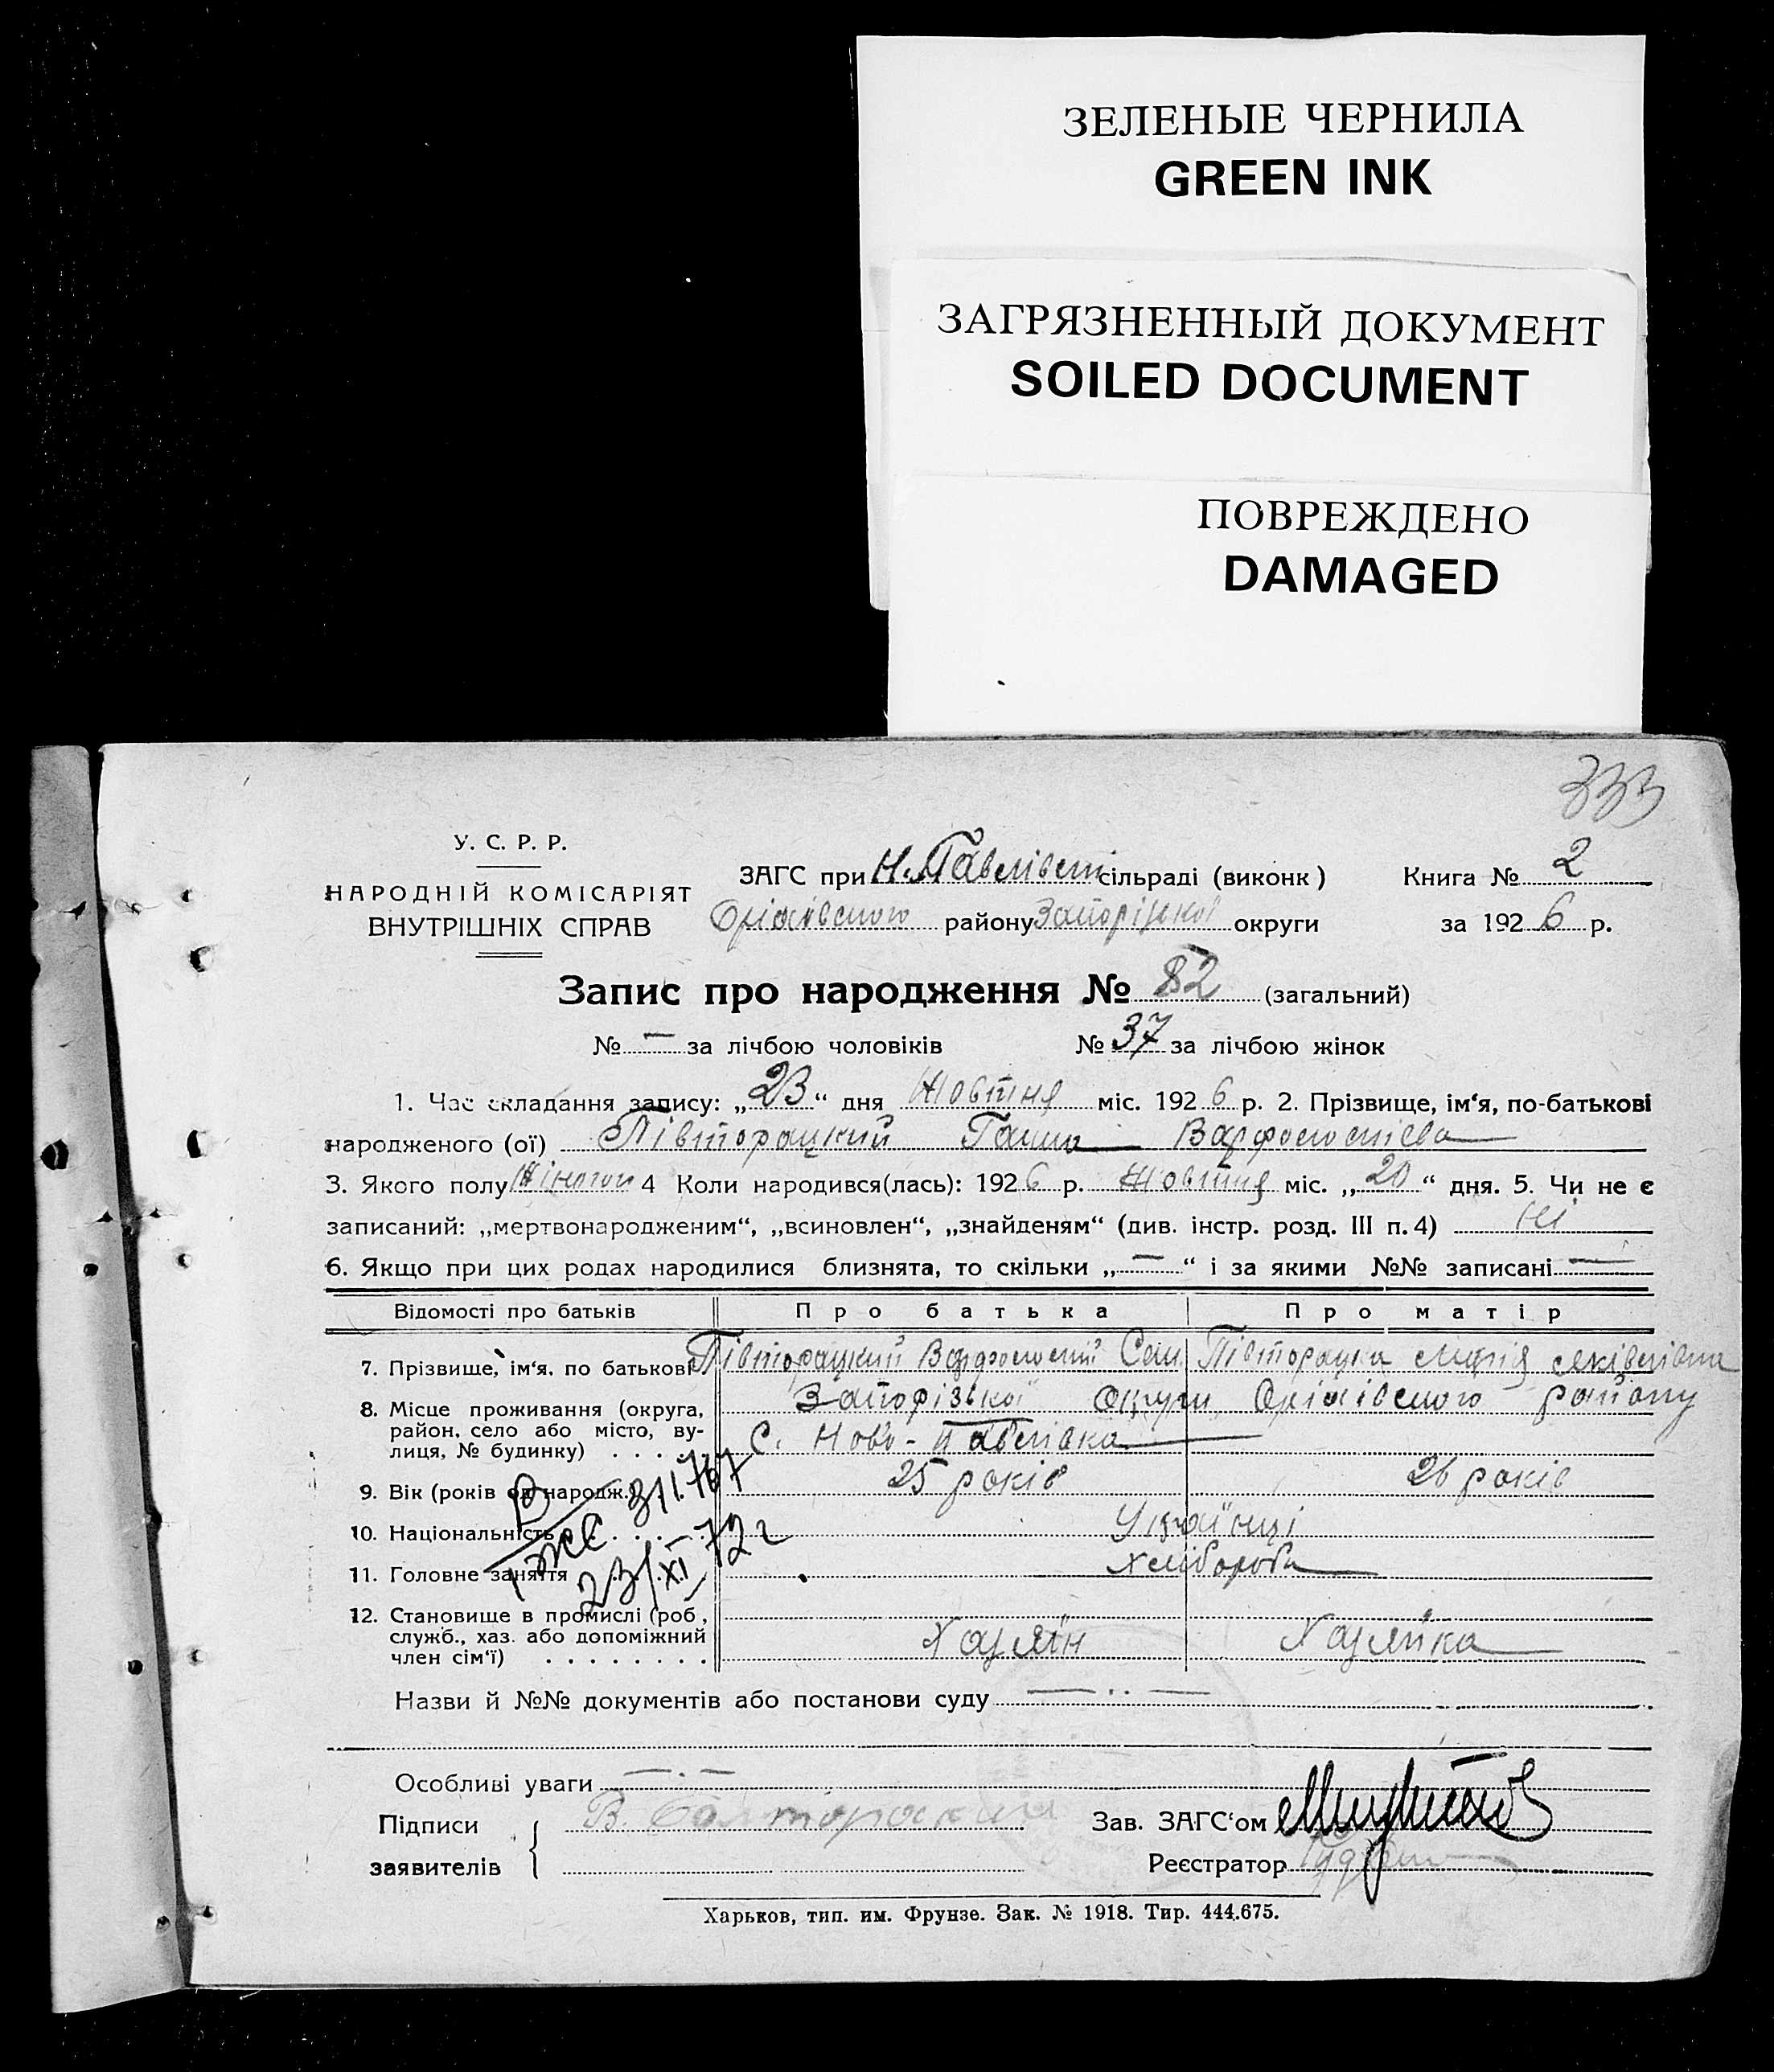 ЗЕЛЕНЫЕ ЧЕРНИЛА
GREEN INK
ЗАГРЯЗНЕННЫЙ ДОКУМЕНТ
SOILED DOCUMENT
ПОВРЕЖДЕНО
DAMAGED
333
У. С. Р. Р.
НАРОДНІЙ КОМІСАРІЯТ
ВНУТРІШНІХ СПРАВ
ЗАГС при Н. Павлівст сільраді (виконк) Книга № 2
Оріхівського району Запорізької округи за 1926 р.
Запис про народження № 82 (загальний)
№ — за лічбою чоловіків № 37 за лічбою жінок
1. Час складання запису: „23“ дня Жовтня міс. 1926 р. 2. Прізвище, ім‘я, по-батькові
народженого (ої) Півторацкий Ганна
3. Якого полу 4 Коли народився(лась): 1926 р. Жовтня міс. „20“ дня. 5. Чи не є
записаний: „мертвонародженим“, „всиновлен“, „знайденям“ (див. інстр. розд. III п. 4) Ні
6. Якщо при цих родах народилися близнята, то скільки „—“ і за якими №№ записані —
Відомості про батьків Про батька Про матір
7. Прізвище, ім‘я, по батькові Півторацкий Варфоломій Сам Півторацка Марія Яківлівна
8. Місце проживання (округа, Запорізької Округи Оріхівского району
район, село або місто, ву-
лиця, № будинку) . . . . С. Ново-Павлівка
9. Вік (років од народж.) 25 років 26 років
10. Національність . . . . . Українці
11. Головне заняття . . . . Хлібороби
12. Становище в промислі (роб.,
служб., хаз. або допоміжний
член сім‘ї) . . . . . . . . Хазяїн Хазяйка
23/XI 72 г
Назви й №№ документів або постанови суду — . . —
Особливі уваги — . —
Підписи В. Полторакий Зав. ЗАГС‘ом
заявителів Реєстратор
Харьков, тип. им. Фрунзе. Зак. № 1918. Тир. 444.675.